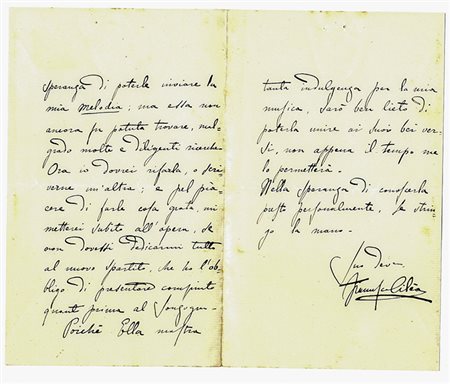 speranza di poterle inviare la
mia melodia; ma essa non
ancora fu potuta trovare, mal-
grado molte e diligenti ricerche.
Ora io dovrei rifarla, o scri-
verne un'altra; e pel pia-
cere di farle cosa grata, mi
metterei subito all'opera, se
non dovessi dedicarmi tutto
al nuovo spartito, che ho l'ob-
bligo di presentare compiuto
quanto prima al Sonzogno.
Poichè Ella mostra
tanta indulgenza per la mia
musica, sarò ben lieto di
poterla unire ai suoi bei ver-
si, non appena il tempo me
lo permetterà.
Nella speranza di conoscerla
presto personalmente, le strin-
go la mano.
Suo dev
Francesco Cilèa